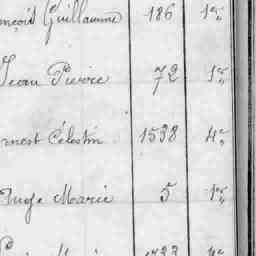 nçois Guillaume 186 1er
Jean Pierre 72 1er
rnest Célestin 1538 4e
Ange Marie 5 1er